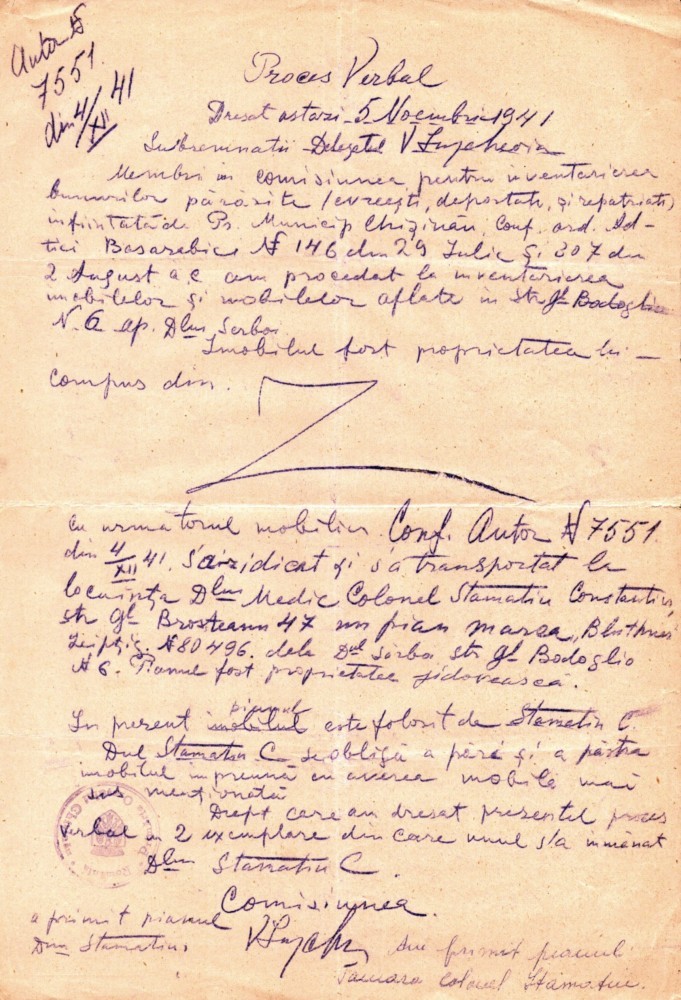 Autor №
7551
din 4/XII 41
Proces Verbal
Dresat astazi 5 Noembrie 1941
Subsemnatii Delegatul V
Membri in comisiunea pentru inventarierea
bunurilor părăsite (evreești, deportate, și repatriați)
infiintată de Pr. Municip Chișinău, conf. ord.
Basarabiei № 146 din 29 Iulie și 307 din
2 August a.c. am procedat la inventarierea
imobilelor și mobilelor aflate in Str. Gl. Bodoglio
N. 6 ap. Dlui Sorboi
Imobilul fost proprietatea lui —
compus din.
cu urmatorul mobilier. Conf. Autor № 7551
din 4/XII 41. s'a ridicat și s'a transportat la
locuința Dlui Medic Colonel Stamatiu Constantin,
str Gl Brosteanu 47 un pian marca „Bluthner
Leipzig № 80496. dela Dul Sorboi str Gl Bodoglio
№ 6. Pianul fost proprietatea jidovească.
In prezent imobilul pianul este folosit de Stamatiu C.
Dnul Stamatiu C se obligă a păzi și a păstra
imobilul impreună cu averea mobilă mai
sus menționată
Drept care am dresat prezentul proces
verbal in 2 exemplare din care unul s'a inmânat
Dlui Stamatiu C.
Comisiunea.
a primit pianul
Dna Stamatiu,
primit pianul
Tamara Colonel Stamatiu.